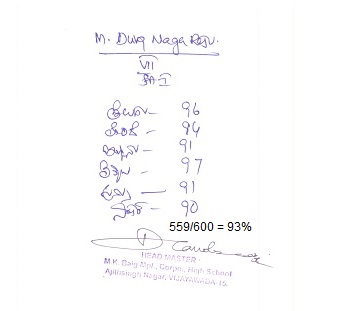 M. Durg Naga Raju.
VII
FA-I
తెలుగు - 96
హిందీ - 94
- 91
- 97
- 91
- 90
559/600 = 93%
HEAD MASTER
M.K. Baig Mpl., Corpo., High School
Ajithsingh Nagar, VIJAYAWADA-15.